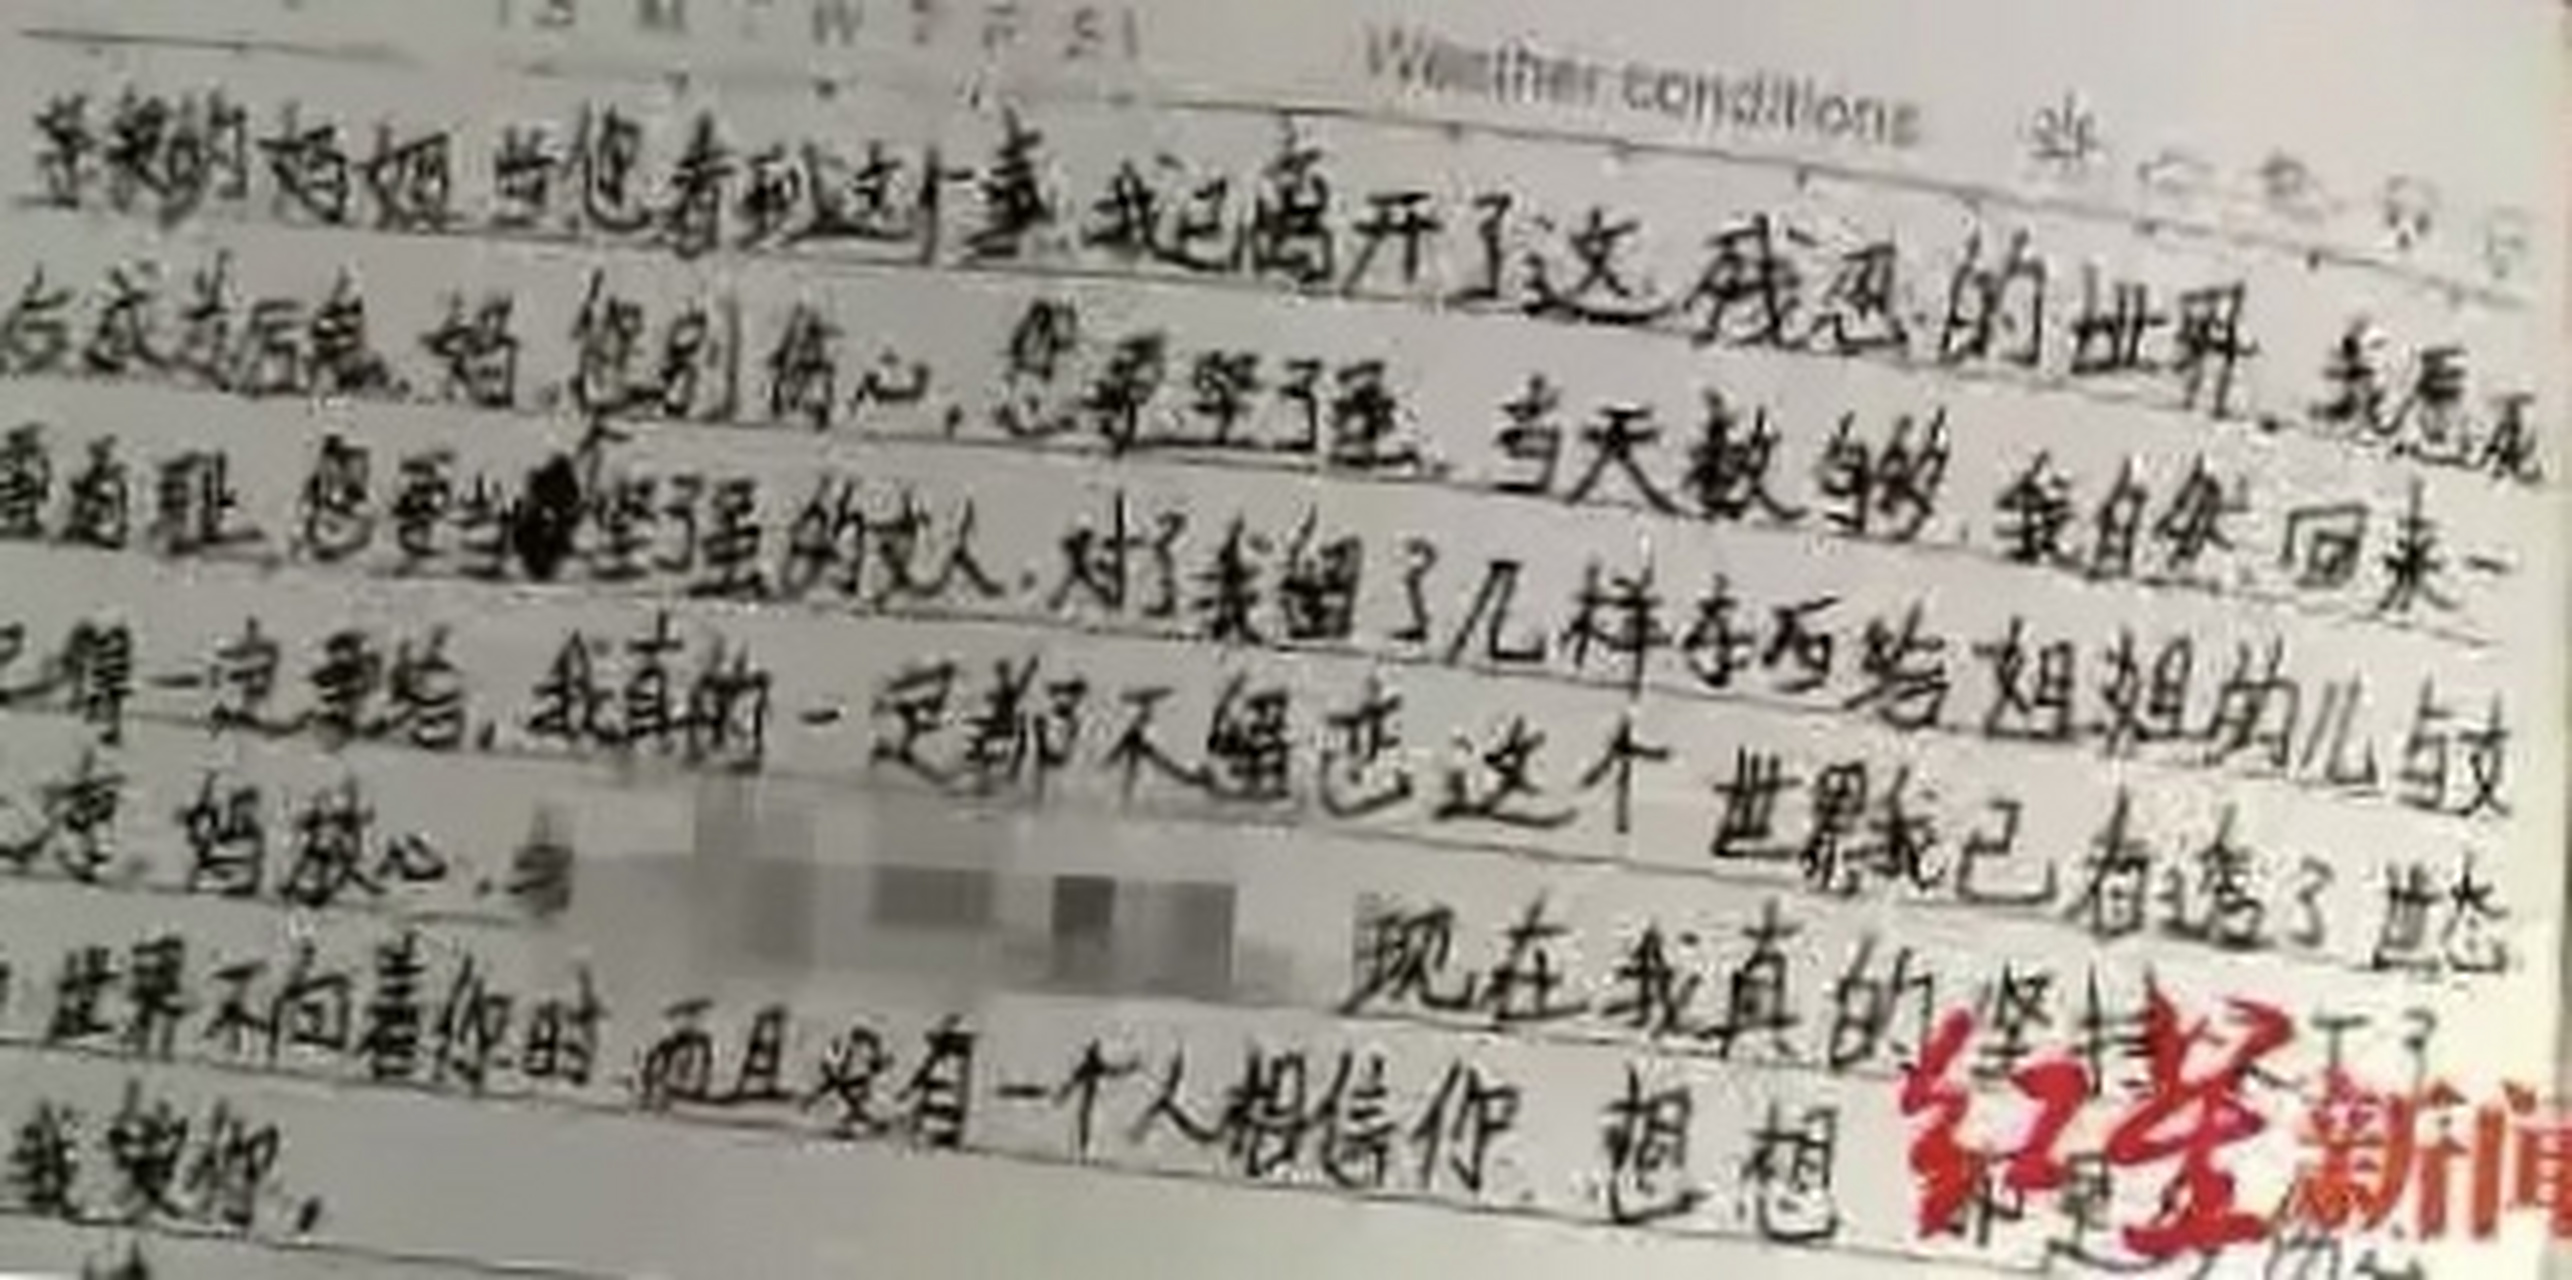 Weather conditions
亲爱的妈妈 当您看到这个事 我已离开了这残忍的世界. 我愿死
后 妈 您别伤心, 您要坚强. 当天数够 我自然回来一
您要当坚强的女人. 对了我留了几样东西给姐姐的儿与女
记得一定要给, 我真的一定都不留恋这个世界我已看透了世态
凉 妈放心. 现在我真的坚持 了
世界不向着你时 而且没有一个人相信你 想想
我爱你,
红星新闻